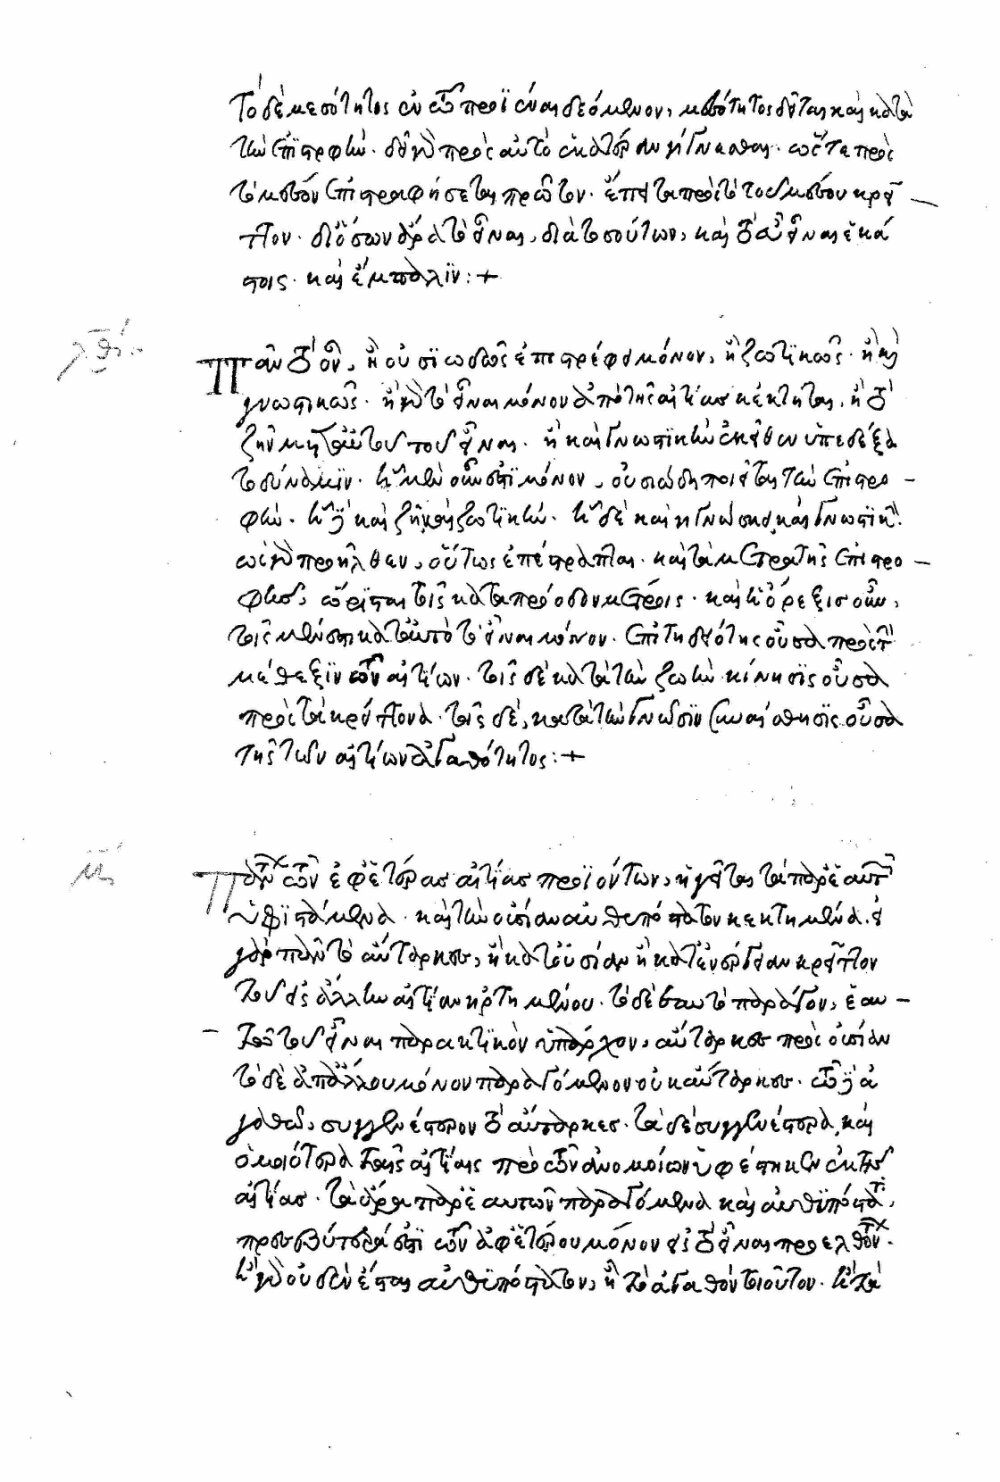 τὸ δὲ μεσότητος ἐν τῷ προϊέναι δεόμενον, μεσότητος δεῖται καὶ κατὰ
τὴν ἐπιστροφήν. δεῖ γὰρ πρὸς αὐτὸ ἑκάτερον γίγνεσθαι. ὥστε πρὸς
τὸ μέσον ἐπιστραφήσεται πρῶτον. ἔπειτα πρὸς τὸ τοῦ μέσου κρεῖ
ττον. δι' ὅσων ἄρα τὸ εἶναι, διὰ τοσούτων, καὶ τὸ εὖ εἶναι ἑκά
στοις. καὶ ἔμπαλιν:+
λθ΄.
Πᾶν τὸ ὄν, ἢ οὐσιωδῶς ἐπιστρέφει μόνον, ἢ ζωτικῶς. ἢ καὶ
γνωστικῶς. ἢ γὰρ τὸ εἶναι μόνον ἀπὸ τῆς αἰτίας κέκτηται, ἢ τὸ
ζῆν μετὰ τοῦ εἶναι. ἢ καὶ γνωστικὴν ἐκεῖθεν ὑπεδέξα
το δύναμιν. ᾗ μὲν οὖν ἔστι μόνον, οὐσιώδη ποιεῖται τὴν ἐπιστρο
φήν. ᾗ δὲ καὶ ζῇ, καὶ ζωτικήν. ᾗ δὲ καὶ γινώσκει, καὶ γνωστικήν.
ὡς γὰρ προῆλθεν, οὕτως ἐπέστραπται. καὶ τὰ μέτρα τῆς ἐπιστρο
φῆς, ὥρισται τοῖς κατὰ πρόοδον μέτροις. καὶ ἡ ὄρεξις οὖν,
τοῖς μέν ἐστι κατ' αὐτὸ τὸ εἶναι μόνον. ἐπιτηδειότης οὖσα πρὸς τὴν
μέθεξιν τῶν αἰτίων. τοῖς δὲ κατὰ τὴν ζωὴν κίνησις οὖσα
πρὸς τὰ κρείττονα. τοῖς δέ, κατὰ τὴν γνῶσιν συναίσθησις οὖσα
τῆς τῶν αἰτίων ἀγαθότητος:+
μ΄.
Πάντων τῶν ἀφ' ἑτέρας αἰτίας προϊόντων, ἡγεῖται τὰ παρ' ἑαυτῶν
ὑφιστάμενα. καὶ τὴν οὐσίαν αὐθυπόστατον κεκτημένα. εἰ
γὰρ πᾶν τὸ αὔταρκες, ἢ κατ' οὐσίαν ἢ κατ' ἐνέργειαν κρεῖττον
τοῦ εἰς ἄλλην αἰτίαν ἀρτημένου. τὸ δὲ ἑαυτὸ παράγον, ἑαυ
τῷ τοῦ εἶναι παρακτικὸν ὑπάρχον, αὔταρκες πρὸς οὐσίαν
τὸ δὲ ἀπ' ἄλλου μόνον παραγόμενον οὐκ αὔταρκες. τῷ δὲ ἀ
γαθῷ, συγγενέστερον τὸ αὔταρκες. τὰ δὲ συγγενέστερα, καὶ
ὁμοιότερα ταῖς αἰτίαις πρὸ τῶν ἀνομοίων ὑφέστηκεν ἐκ τῆς
αἰτίας. τὰ ἄρα παρ' ἑαυτῶν παραγόμενα καὶ αὐθυπόστατα.
πρεσβύτερά ἐστι τῶν ἀφ' ἑτέρου μόνον εἰς τὸ εἶναι προελθόντων.
ἢ γὰρ οὐδὲν ἔσται αὐθυπόστατον, ἢ τὸ ἀγαθὸν τοιοῦτον. ἢ τὰ